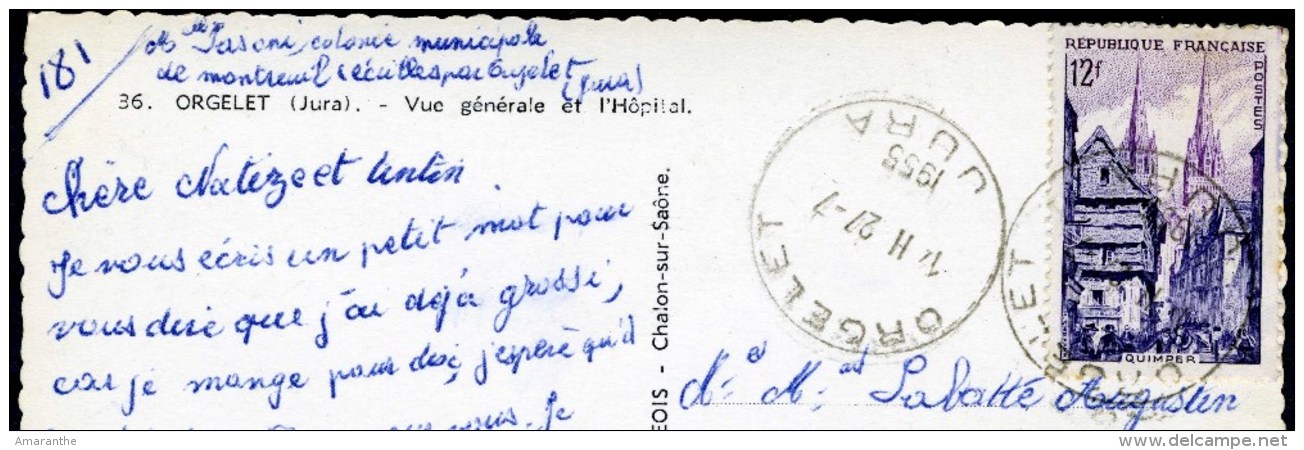 181
Mlle Pasoni, colonie municipale
de montreuil (écrilles par Orgelet
(Jura)
36. ORGELET (Jura). - Vue générale et l'Hôpital.
Chère Natize et tintin.
Je vous écris un petit mot pour
vous dire que j'ai déjà grossi,
car je mange pour dix, j'espère qu'il
vous. Je
EOIS - Chalon-sur-Saône.
ORGELET
14 H 27-7
1955
JURA
RÉPUBLIQUE FRANÇAISE
12f
POSTES
QUIMPER
ORGELET
Mr et Mme Labatte Augustin
Amaranthe
www.delcampe.net